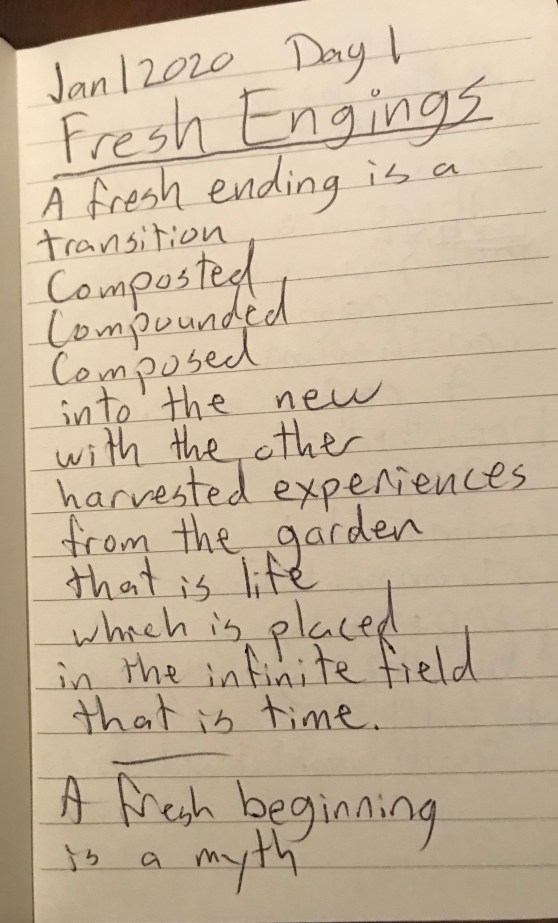 Jan 1 2020 Day 1
Fresh Engings
A fresh ending is a
transition
Composted
Compounded
Composed
into the new
with the other
harvested experiences
from the garden
that is life
which is placed
in the infinite field
that is time.
A fresh beginning
is a myth